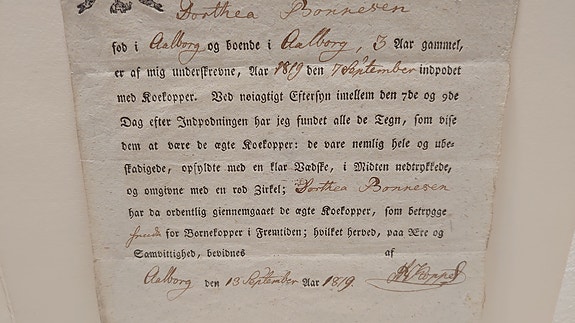 Dorthea Bonnesen
fød i Aalborg og boende i Aalborg, 3 Aar gammel,
er af mig underskrevne, Aar 1819 den 7 September indpodet
med Koekopper. Ved nøiagtig Eftersyn imellem den 7de og 9de
Dag efter Indpodningen har jeg fundet alle de Tegn, som vise
dem at være de ægte Koekopper: de vare nemlig hele og ube-
skadigede, opfyldte med en klar Vædske, i Midten nedtrykkede,
og omgivne med en rød Zirkel; Dorthea Bonnesen
har da ordentlig giennemgaaet de ægte Koekopper, som betrygge
for Børnekopper i Fremtiden; hvilket herved, paa Ære og
Samvittighed, bevidnes af
Aalborg den 13 September Aar 1819.